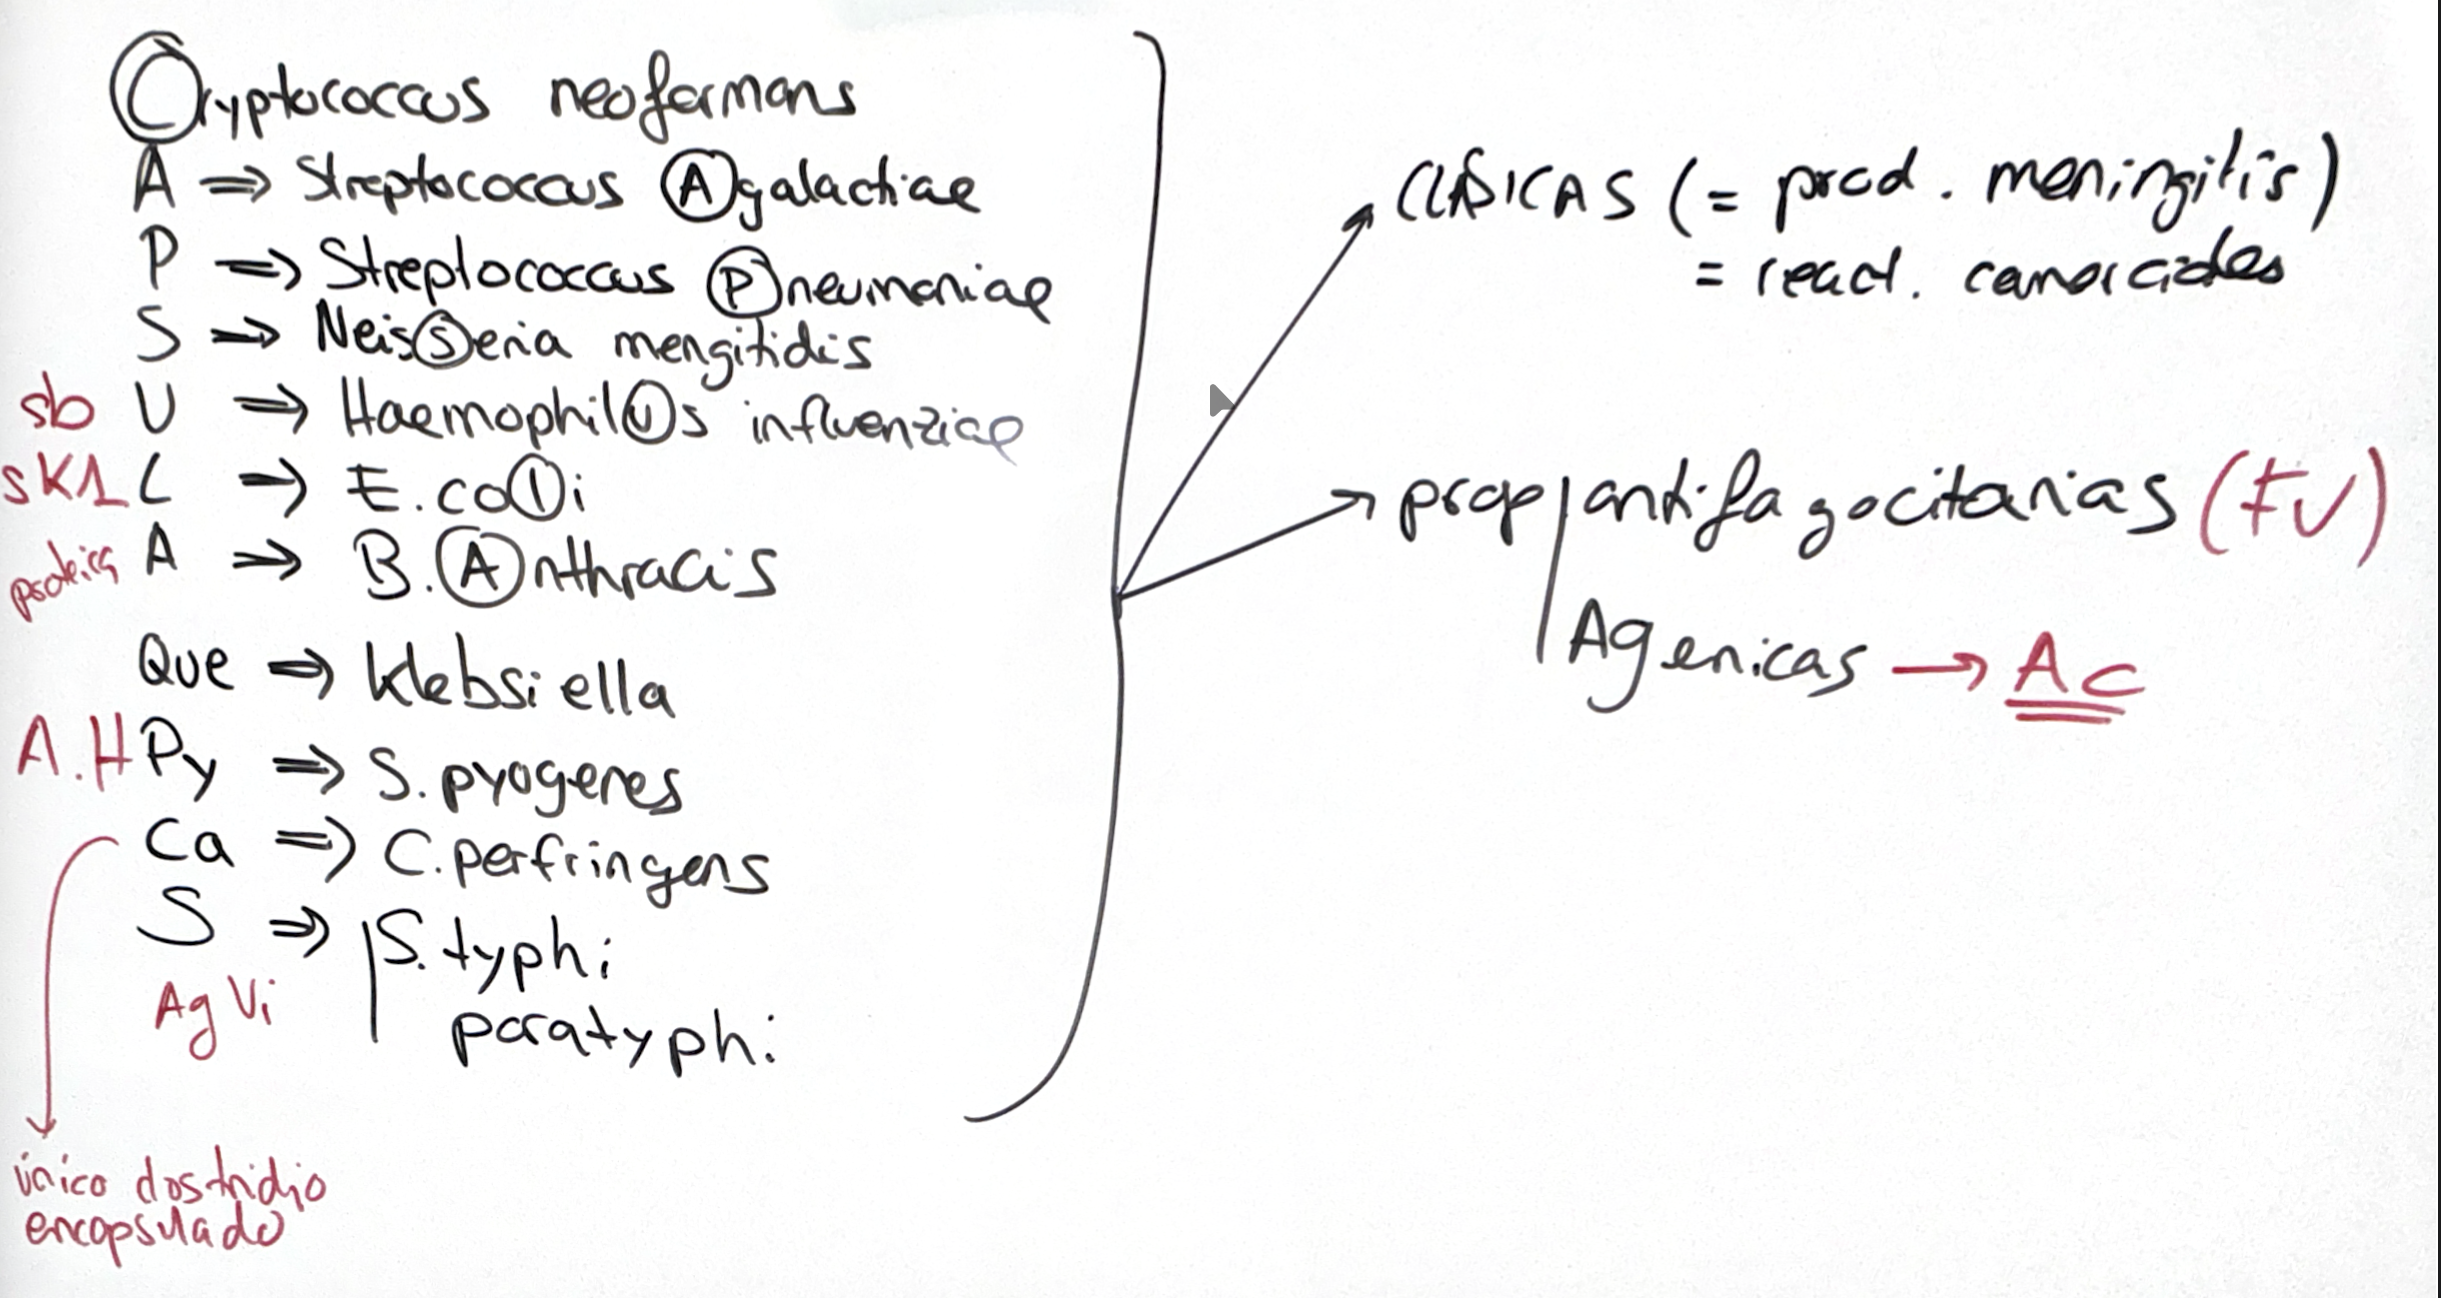 Cryptococcus neoformans
A => Streptococcus Agalactiae
P => Streptococcus Pneumoniae
S => Neisseria mengitidis
sb U => Haemophilus influenziae
sK1 L => E.coli
proteica A => B.Anthracis
Que => Klebsiella
A.H Py => S.pyogenes
Ca => C.perfringens
S => S.typhi
Ag Vi paratyphi
único clostridio
encapsulado
CLÁSICAS (= prod. meningitis)
= react. canorcides
prop antifagocitarias (FV)
Agenicas → Ac